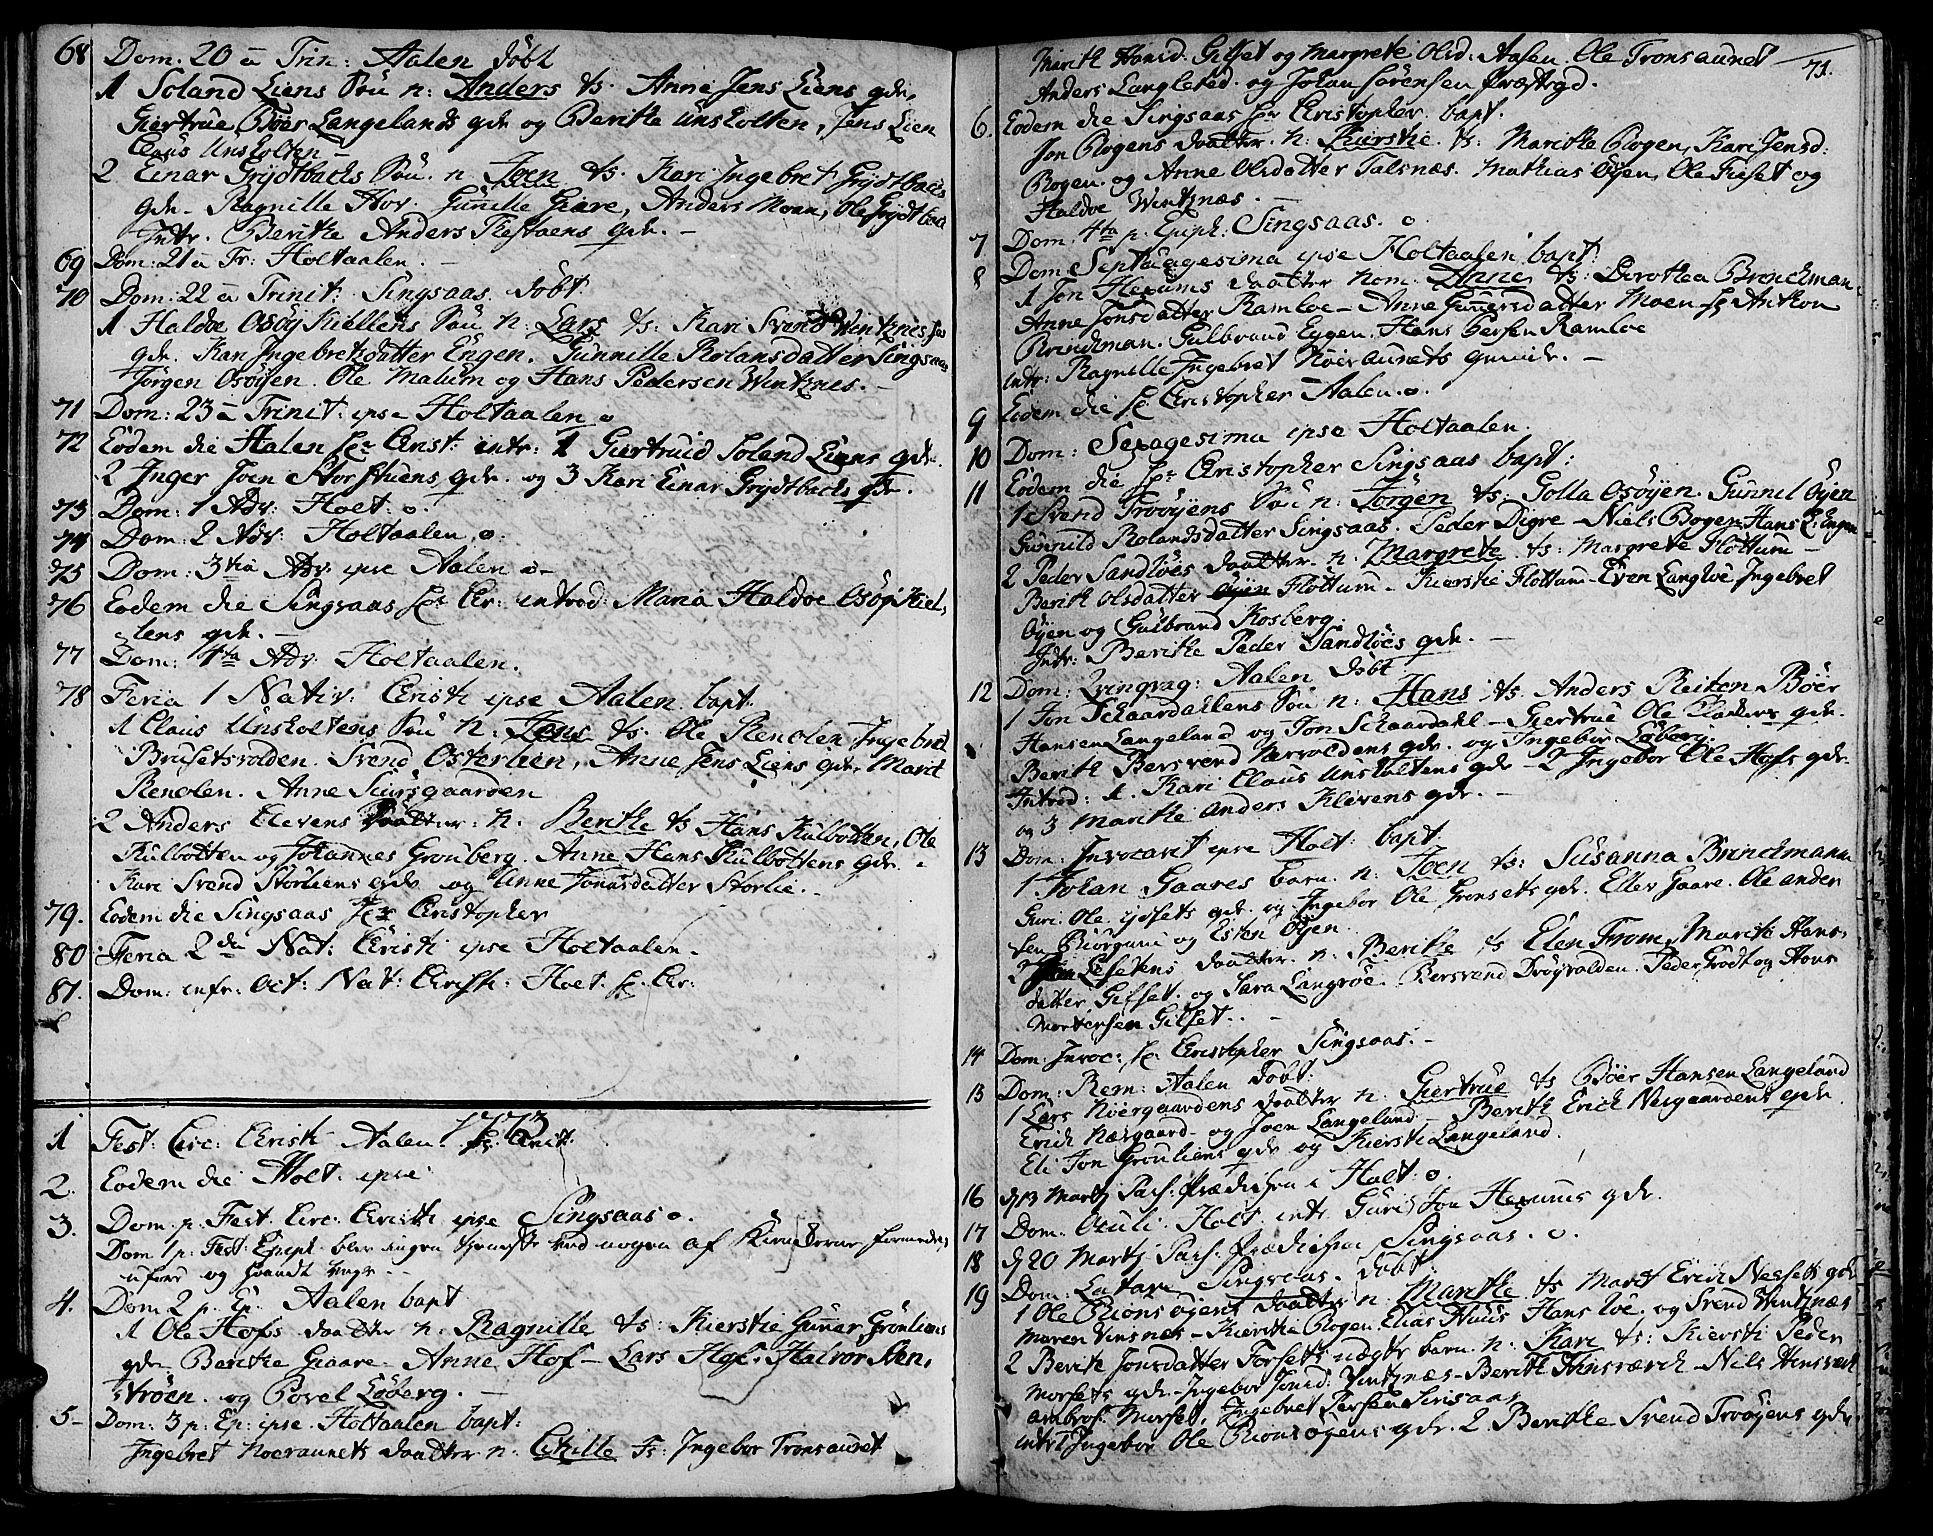 68 Dom. 20 a Trin: Aalen döbt
1 Soland Liens Sön n: Anders ts. Anne Jens Liens qde,
Giertrue Böer Langelands qde og Berithe Unsholten, Jens Lien
Claus Unsholten
2 Einar Grydtbachs Sön. n Joen ts. Kari Ingebret Grydtbachs
qde. Ragnille Hov. Gunille Gaare, Anders Moen, Ole Grydtbach
Intr. Berithe Anders qde. -
69 Dom: 21 a Tr: Holtaalen. -
70 Dom: 22 a Trinit: Singsaas döbt
1 Haldoe Osöy Kiellens Sön n: Lars ts: Kari Svend Wintznes
qde. Kari Ingebretsdatter Engen. Gunnille Rolansdatter Singsaas
Jörgen Osöyen. Ole Malum og Hans Pedersen Wintznes. -
71 Dom: 23 a Trinit: ipse Holtaalen o
72 Eodem die Aalen intr: 1 Giertruid Soland Liens qde.
2 Inger Joen Storstuens qde. og 3 Kari Einar Grydtbachs qde.
73 Dom: 1 Adv: Holt: o.
74 Dom: 2 Adv: Holtaalen o.
75 Dom: 3tia Adv: ipse Aalen o-
76 Eodem die Singsaas introd: Maria Haldoe Osöy Kiel,
lens qde. -
77 Dom: 4ta Adv: Holtaalen.
78 Feria 1 Nativ: Christi ipse Aalen bapt.
1 Claus Unsholtens Sön n: Jens ts: Ole Renolen Ingebret
Brusetsvolden. Svend Osterlien, Anne Jens Liens qde, Marit
Renolen. Anne
2 Anders Elevens Daatter: n. Berithe ts Hans Kulbotten, Ole
Kulbotten og Johannes Grouberg. Anne Hans Kulbottens qde.
Kari Svend Storliens qde og Anne Jonasdatter Storlie. -
79. Eodem die Singsaas Christopher
80 Feria 2da Nat: Christi ipse Holtaalen.
81. Dom: infr: Oct: Nat: Christi: Holt:
1773
1 Fest: Circ: Christi Aalen.
2. Eodem die Holt. ipse
3. Dom. p. Fest. Circ: Christi ipse Singsaas o.
Dom 1 p: Fest: Epiph. blev ingen tieneste ved nogen af Kirckerne formedelst
uföre og Vejr -
4. Dom 2 p. Ep. Aalen bapt
1 Ole Hofs daatter n: Ragnille ts: Kierstie Gunner Grönliens
qde Berithe Gaare. Anne Hof - Lars Hof. Halvor
og Povel Löberg. -
5- Dom: 3 p: Ep: ipse Holtaalen bapt:
Ingebret Noeraunets daatter n: ts: Ingebor Tronsaunet
71.
Marith Hansd. Gilset og Margrete Olsd. Aasen. Ole Tronsaunet
Anders Langleted. og Johan Sörensen
6. Eodem die Singsaas Christopher bapt.
Jon Bogens daatter. n: Kierstie. ts: Marithe Bogen, Kari Jensd:
Bogen. og Anne Olsdatter Talsnæs. Mathias Öyen, Ole og
Haldoe Wintznæs. -
7 Dom. 4ta p. Epiph: Singsaas. o
8 Dom Septuagesima ipse Holtaalen bapt:
1 Jon Hexums daatter nom: Anne ts: Dorothea Brinckman
Anne Jonsdatter Ramloe - Anne Gunersdatter Moen Anthon
Brinckman. Gulbrand Eggen. Hans Persen Ramloe
intr: Ragnille Ingebret Noeraunets qvinde. -
9 Eodem die Christopher Aalen. o.
10 Dom: Sexagesima ipse Holtaalen.
11 Eodem die Christopher Singsaas bapt:
1 Svend Troöyens Sön n: Jörgen ts. Golla Osöyen. Gunnil Öyen
Gunnild Rolandsdatter Singsaas. Peder Digre - Niels Bogen. Hans Engen
2 Peder Sandlöes daatter. n: Margrete. ts: Margrete Flottum -
Berith Olsdatter Flöttum - Kierstie Flottum - Even Langloe Ingebret
Öyen og Gulbrand Kosberg.
Intr: Berithe Peder Sandlöes qde. -
12 Dom: Qvinqvag: Aalen döbt
1 Jon Schaardallens Sön n: Hans ts. Anders Reiten, Böer
Hansen Langeland og Jon Schaardahl - Giertrue Ole qde.
Berith Bersvend Nærvoldens qde. og Ingebor Löberg.
Introd: 1. Kari Claus Unsholtens qde - 2 Ingebor Ole Hofs qde
og 3 Marithe Anders Klevens qde. -
13 Dom: Invocavit ipse Holt: bapt.
1 Johan Gaares barn. n: Joen ts: Susanna Brinckmann
Guri Ole qde. og Ingebor Ole Gronsets qde. Eller Gaare. Ole Ander
sen og Esten Öyen
2 daatter. n: Berithe ts Elen From, Marithe Hans,
datter Gilset. og Sara Langröe. Bersvend Dröyvolden. Peder Grodt og Hans
Mortensen Gilset. -
14 Dom: Invoc: Christopher Singsaas. -
15 Dom: Rem: Aalen döbt:
1 Lars Noergaardens daatter n: Giertrue ts Böer Hansen Langeland
Erich Nærgaard - og Joen Langeland. Berith Erich Nærgaardens qde.
Eli Jon Grouliens qde og Kiersti Langeland.
16 d 13 Martz i Holt: o.
17 Dom. Oculi. Holt intr. Guri Jon Hexums qde.
18 d 20 Martz Singsaas. o.
19 Dom: Lætare Singsaas. döbt.
1 Ole daatter n: Marithe ts Maret Erich qde
Maren Vinsnæs - Kierstie Bogen. Elias Huus Hans Loe. og Svend Wintznæs
2 Berith Jonsdatter Forsets udgte barn. n: Kari ts: Kiersti Peder
Morsets qde - Ingebor Jonsd: Vintznæs - Berith Hinsværch - Niels Hinsværch
Morset. Ingebret Persen Sinsaas
intr 1 Ingebor Ole qde. 2. Berithe Svend Troöyens qde.